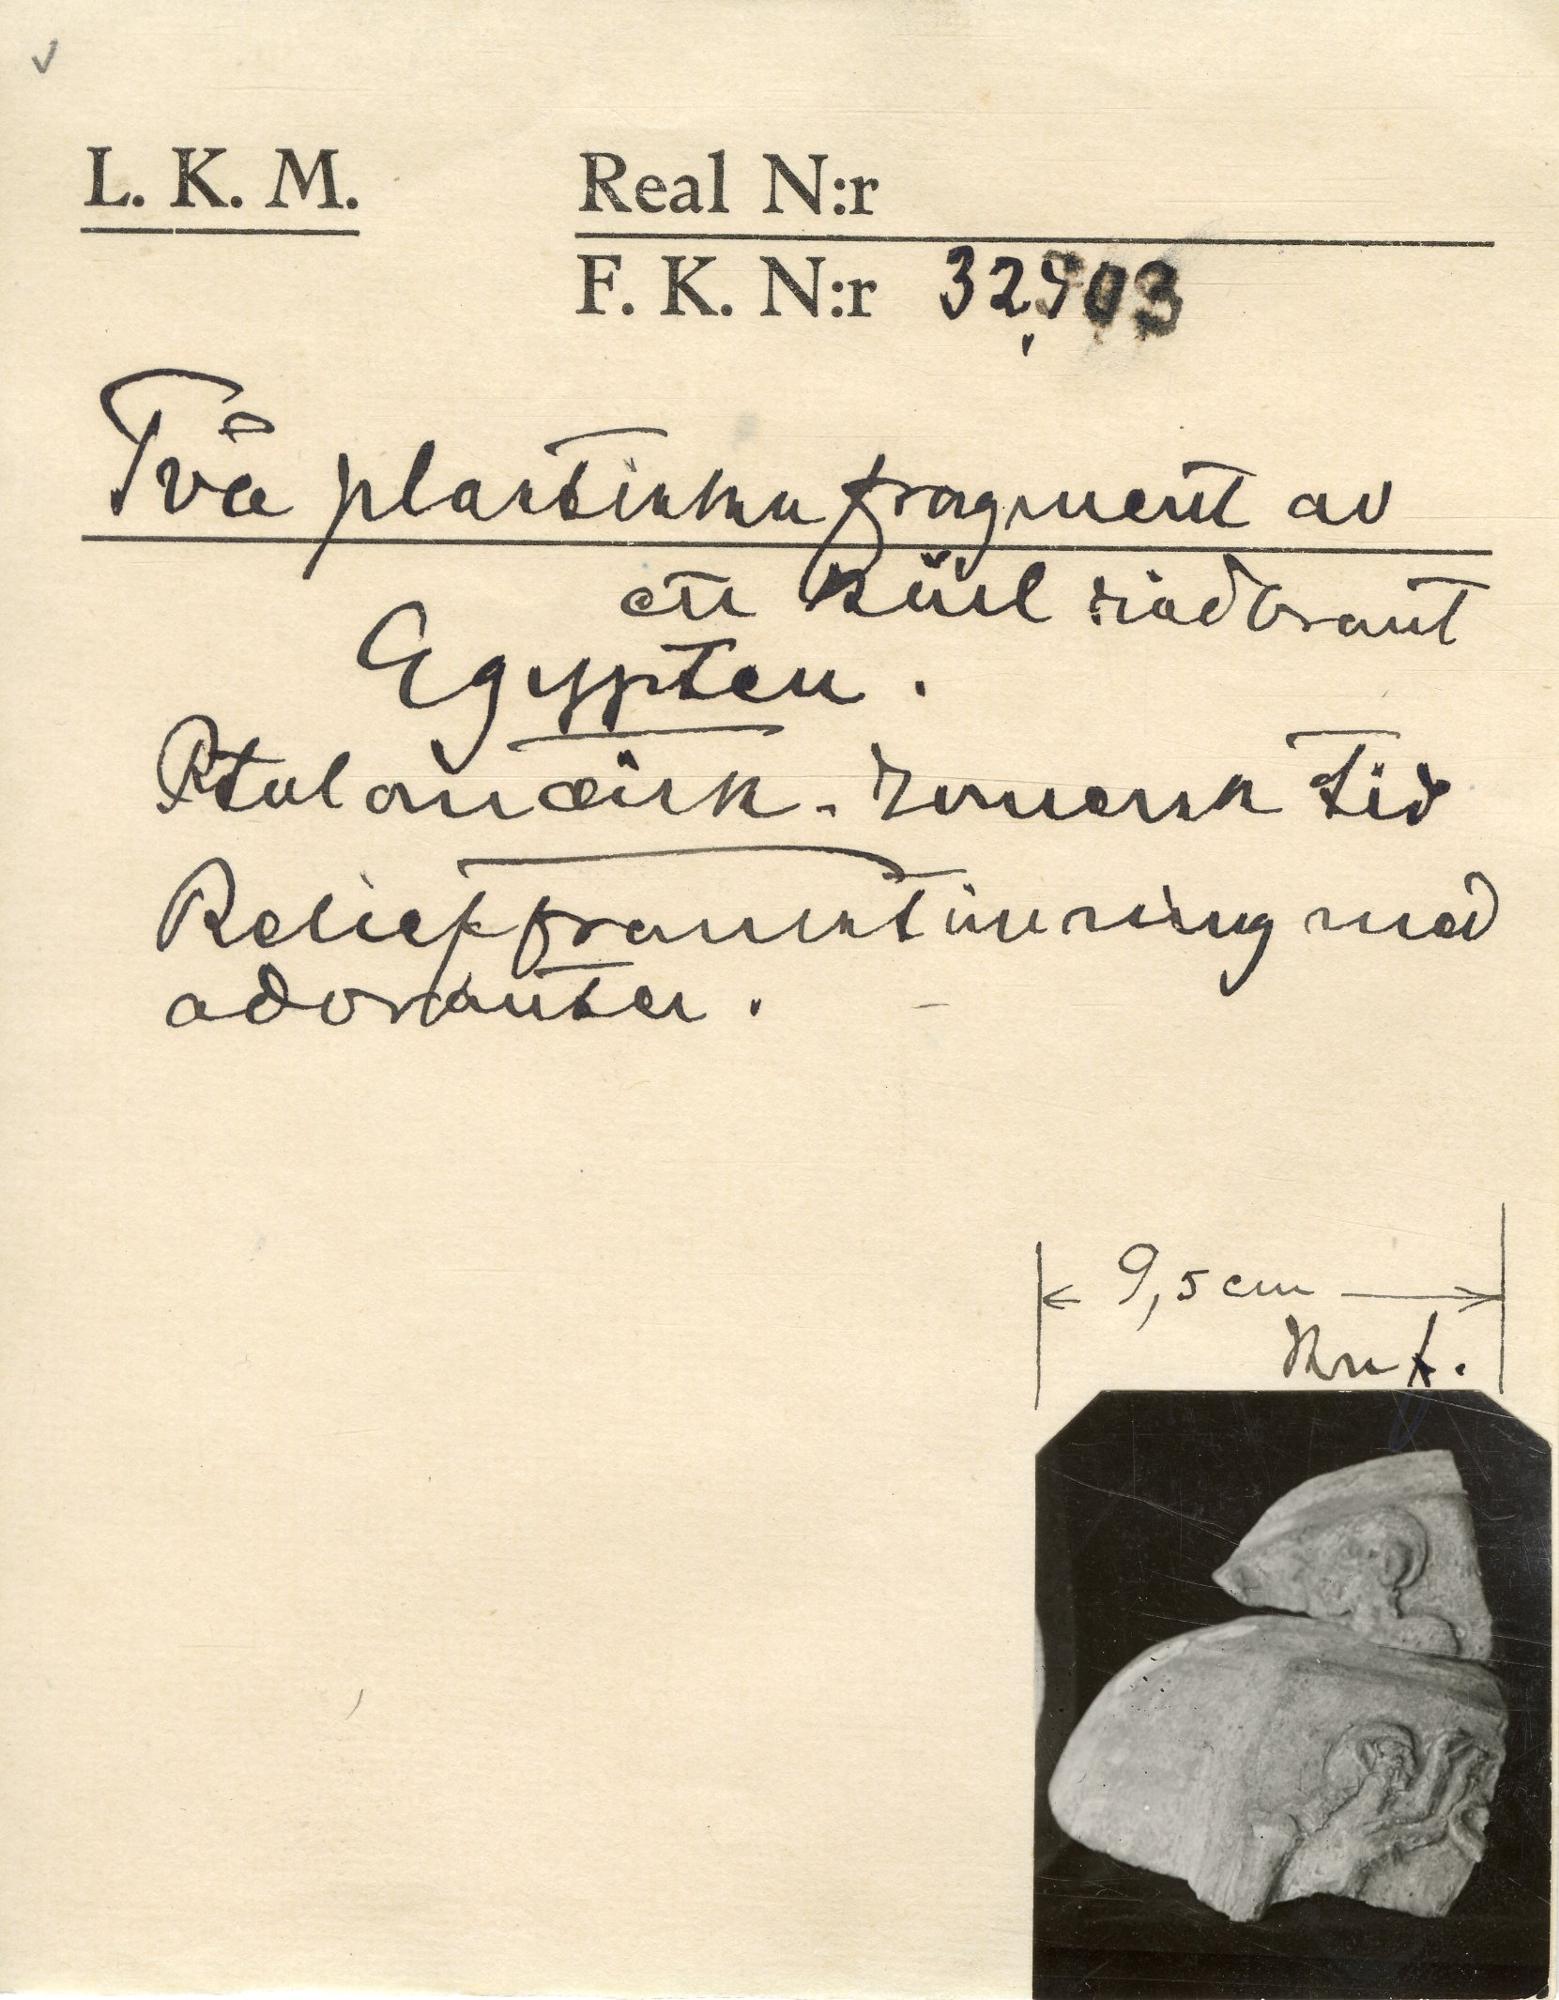 L. K. M.
Real N:r
F. K. N:r 32,903
Två plastiska fragment av
ett kärl
Egypten.
Ptolomæisk-romersk tid
Relieffframställning med
adoranter.
9,5 cm